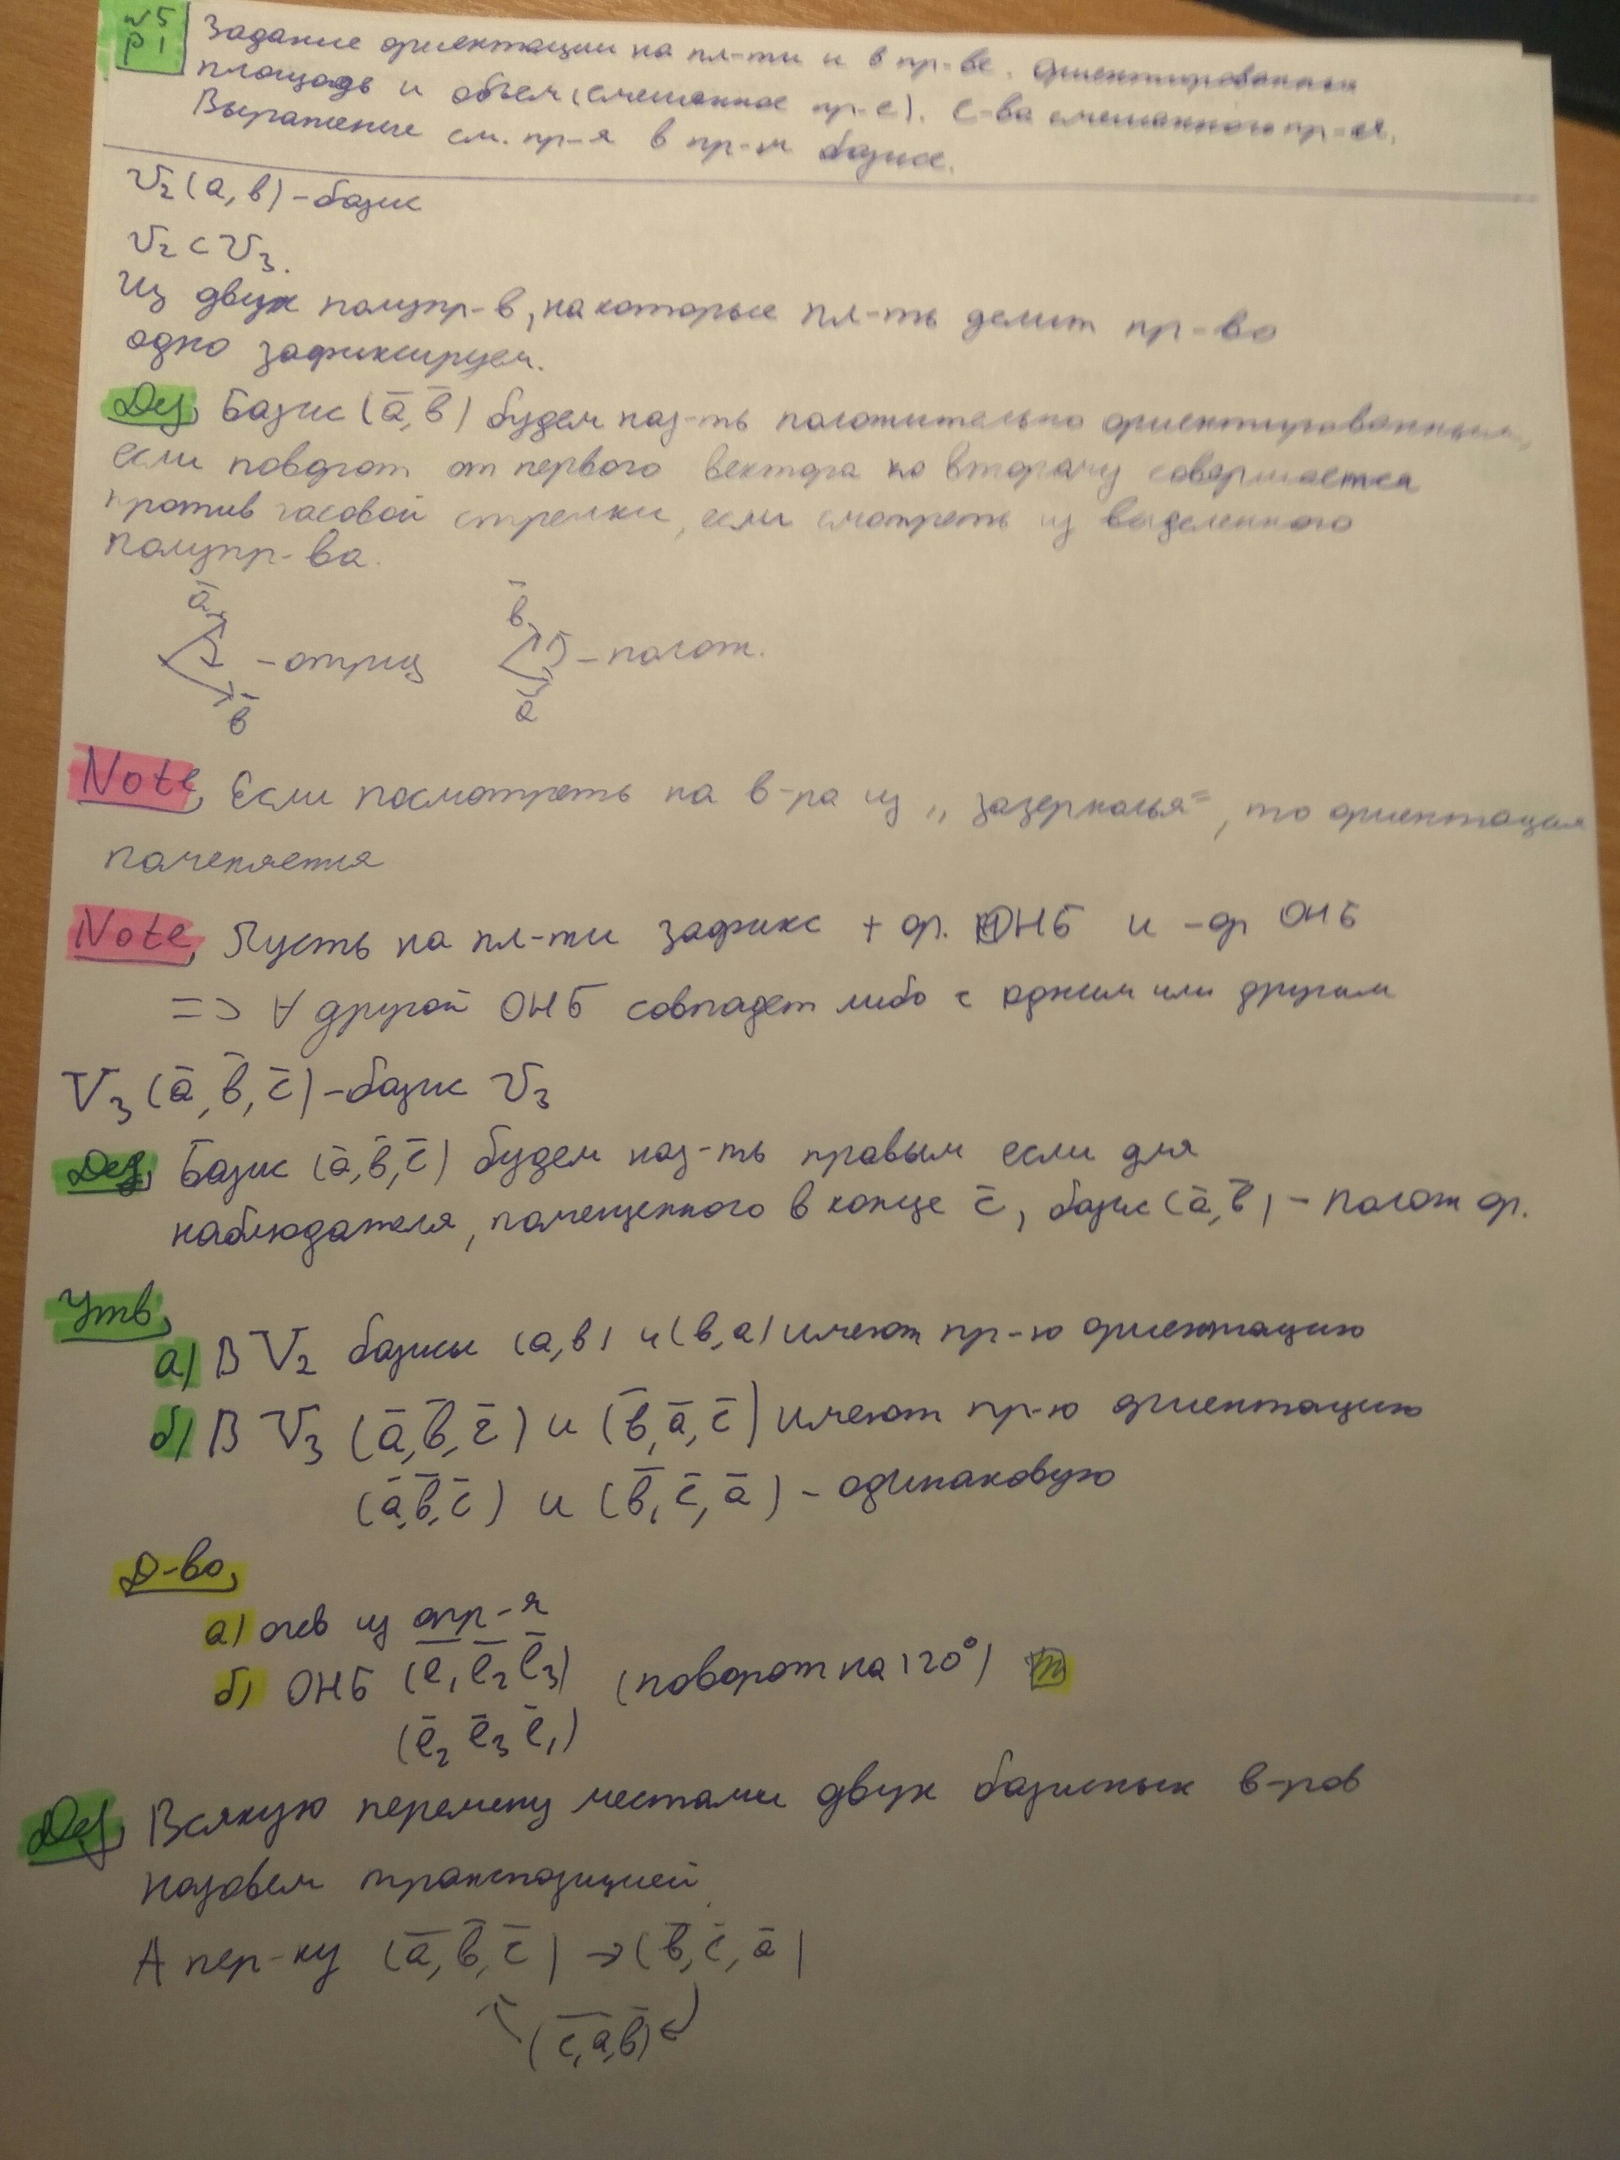 №5
р1
Задание ориентации на пл-ти и в пр-ве. Ориентированная
площадь и объем (смешанное пр-е). С-ва смешанного пр-ея.
Выражение см. пр-я в пр-м базисе.
V₂(а, в) - базис
V₂ ⊂ V₃.
Из двух полупр-в, на которые пл-ть делит пр-во
одно зафиксируем.
Def, Базис (ā, в̄) будем наз-ть положительно ориентированным,
если поворот от первого вектора ко второму совершается
против часовой стрелки, если смотреть из выделенного
полупр-ва.
ā в̄ - отриц
в̄ ā - полож.
Note, Если посмотреть на в-ра из „зазеркалья", то ориентация
поменяется
Note, Пусть на пл-ти зафикс + ор. ОНБ и -ор ОНБ
=> ∀ другой ОНБ совпадет либо с одним или другим
V₃ (ā, в̄, c̄) - базис V₃
Def, Базис (ā, в̄, c̄) будем наз-ть правым если для
наблюдателя, помещенного в конце c̄, базис (ā, в̄) - полож ор.
Утв,
а) В V₂ базисы (а, в) и (в, а) имеют пр-ю ориентацию
б) В V₃ (ā, в̄, c̄) и (в̄, ā, c̄) имеют пр-ю ориентацию
(ā, в̄, c̄) и (в̄, c̄, ā) - одинаковую
Д-во,
а) очев из опр-я
б) ОНБ (ē₁ ē₂ ē₃) (поворот на 120°)
(ē₂ ē₃ ē₁)
Def, Всякую перемену местами двух базисных в-ров
назовем транспозицией
А пер-ку (ā, в̄, c̄) → (в̄, c̄, ā)
(c̄, ā, в̄)